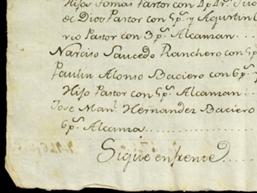 Hijo Tomas Pastor con
de Dios Pastor con 5p.s y Agustin
rio Pastor con 3p.s Alcaman
Narciso Saucedo Ranchero con 5p
Paulin Alonso Baciero con 6p.s y
Hijo Pastor con 5p.s Alcaman
Jose Man.l Hernandez Baciero
6p.s Alcama
Sigue enfrente